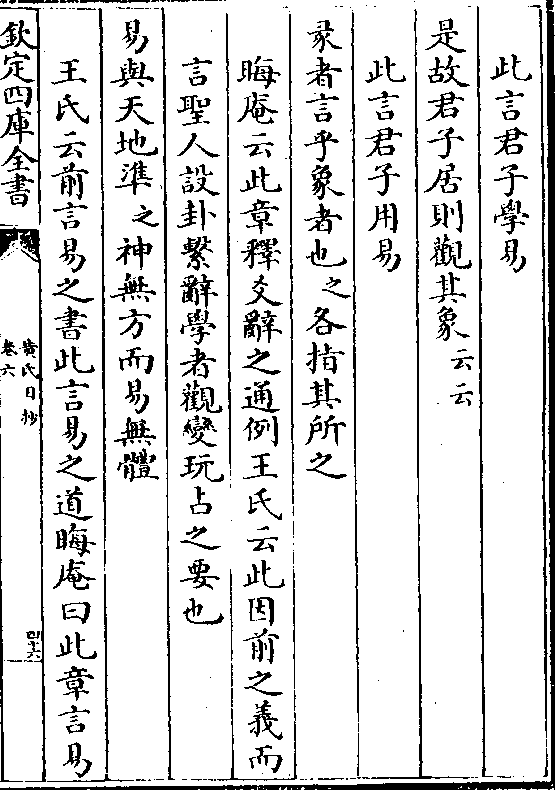 此言君子學易
是故君子居則觀其象云云
此言君子用易
彖者言乎象者也之各指其所之
晦庵云此章釋爻辭之通例王氏云此因前之義而
言聖人設卦繫辭學者觀變玩占之要也
易與天地準之神無方而易無體
王氏云前言易之書此言易之道晦庵曰此章言易
欽定四庫全書
黄氏日抄
卷六
四十六